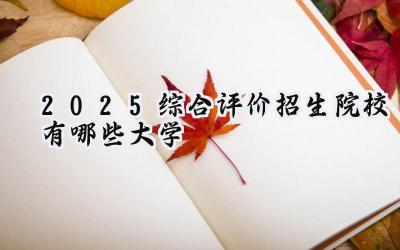 2025综合评价招生院校
有哪些大学